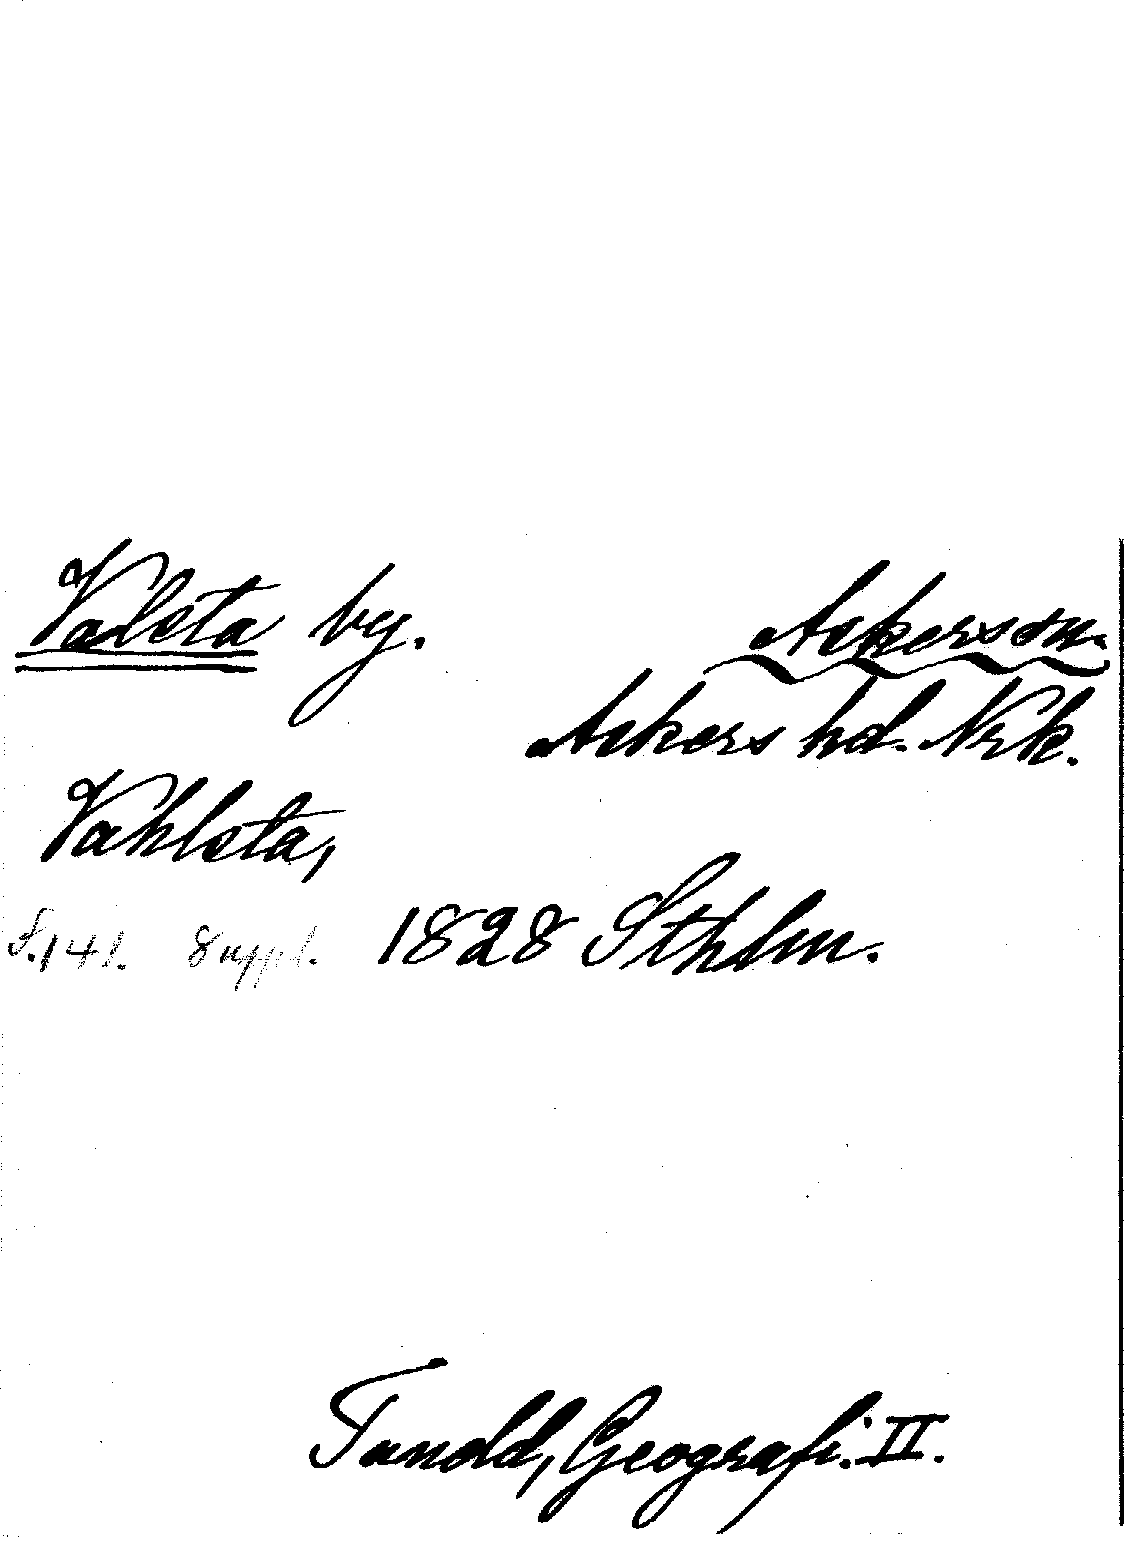 Valsta by. Askers sn.
Askers hd. Nrk.
Vahlsta,
S. 141. Suppl. 1828 Sthlm.
Tunold, Geografi. II.